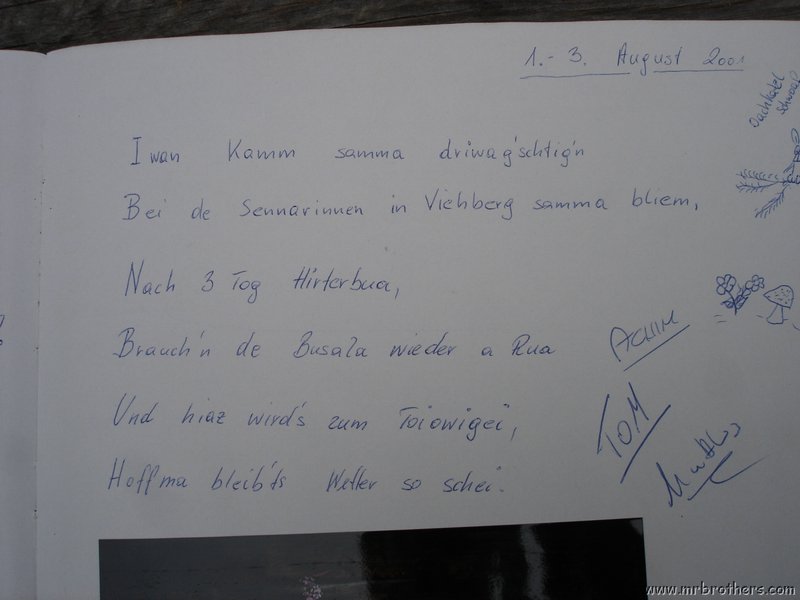 1.- 3. August 2001
Oachkatzl
schwoaf
Iwan Kamm samma driwag'schtig'n
Bei de Sennarinnen in Viehberg samma bliem,
Nach 3 Tog Hirterbua,
Brauch'n de Busala wieder a Rua
Und hiaz wird's zum Toiowigei,
Hoffma bleib'ts Wetter so schei.
ACHIM
TOM
www.mrbrothers.com